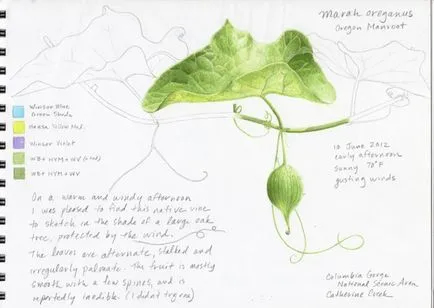 Marah oreganus
Oregon Manroot
Winsor Blue
Green Shade
Hansa Yellow Med.
Winsor Violet
WB + HYM + WV
WB + HYM + WV
10 June 2012
early afternoon
sunny
70°F
gusting winds
On a warm and windy afternoon
I was pleased to find this native vine
to sketch in the shade of a large oak
tree, protected by the wind.
The leaves are alternate, stalked and
irregularly palmate. The fruit is mostly
smooth with a few spines, and is
reportedly inedible. (I didn't try one)
Columbia Gorge
National Scenic Area
Catherine Creek